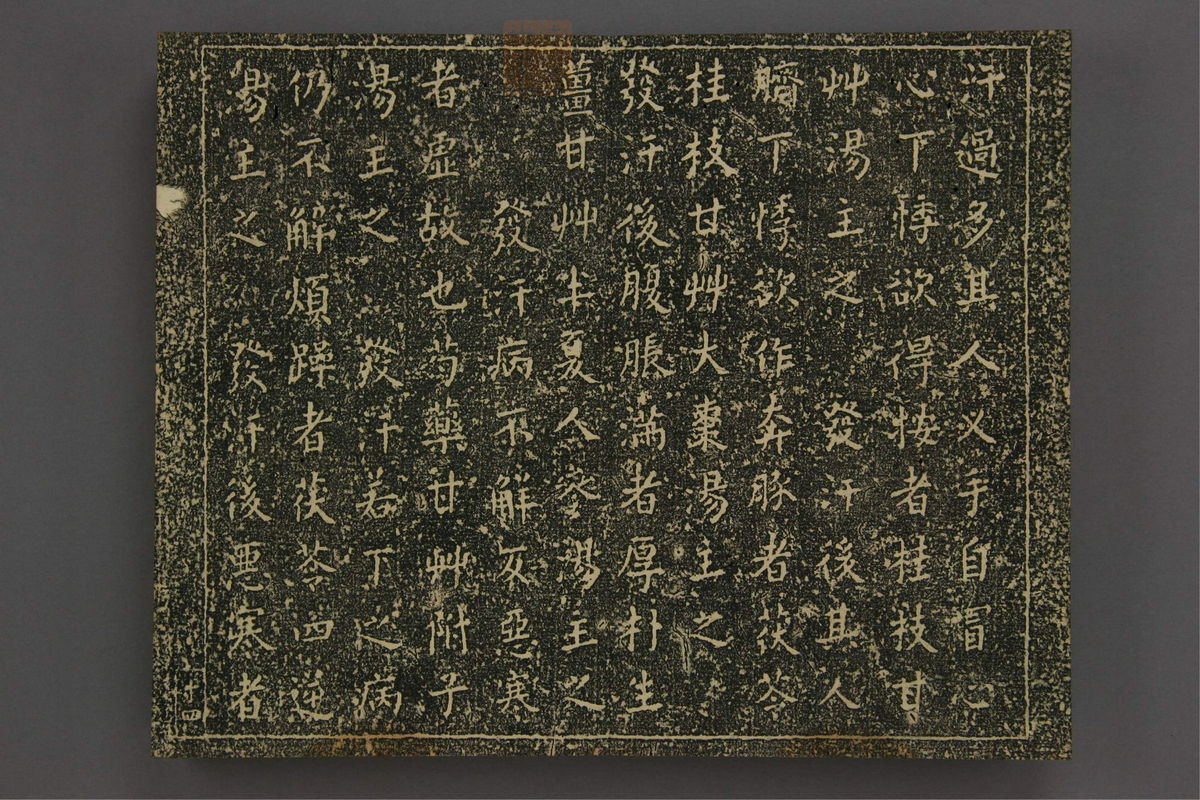 汗過多其人叉手自冒心
心下悸欲得按者桂枝甘
艸湯主之　發汗後其人
臍下悸欲作奔豚者茯苓
桂枝甘艸大棗湯主之
發汗後腹脹滿者厚朴生
薑甘艸半夏人蔘湯主之
發汗病不解反惡寒
者虛故也芍藥甘艸附子
湯主之　發汗若下之病
仍不解煩躁者茯苓四逆
湯主之　發汗後惡寒者